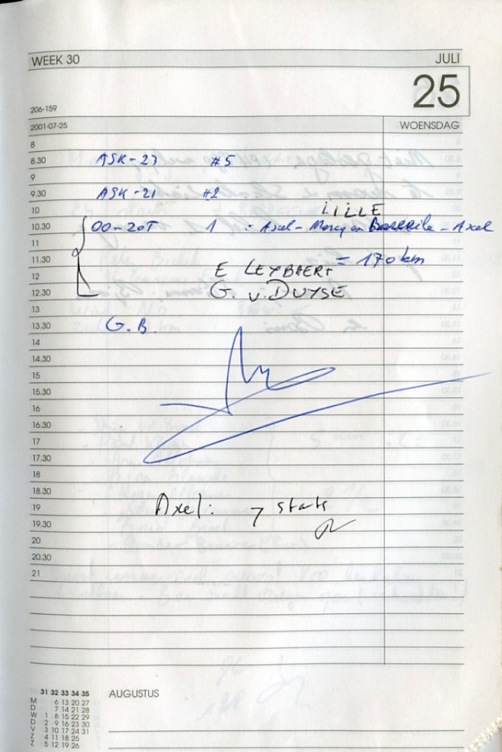 WEEK 30 JULI
25
206-159
2001-07-25 WOENSDAG
8
8.30 ASK-23 #5
9
9.30 ASK-21 #2
10 LILLE
10.30 OO-ZOT 1 : Axel - - Axel
11
11.30 = 170 km
12 E LEYBAERT
12.30 G. v. DUYSE
13
13.30 G.B.
14
14.30
15
15.30
16
16.30
17
17.30
18
18.30
19 Axel: 7 starts
19.30
20
20.30
21
AUGUSTUS
31 32 33 34 35
M 6 13 20 27
D 7 14 21 28
W 1 8 15 22 29
D 2 9 16 23 30
V 3 10 17 24 31
Z 4 11 18 25
Z 5 12 19 26